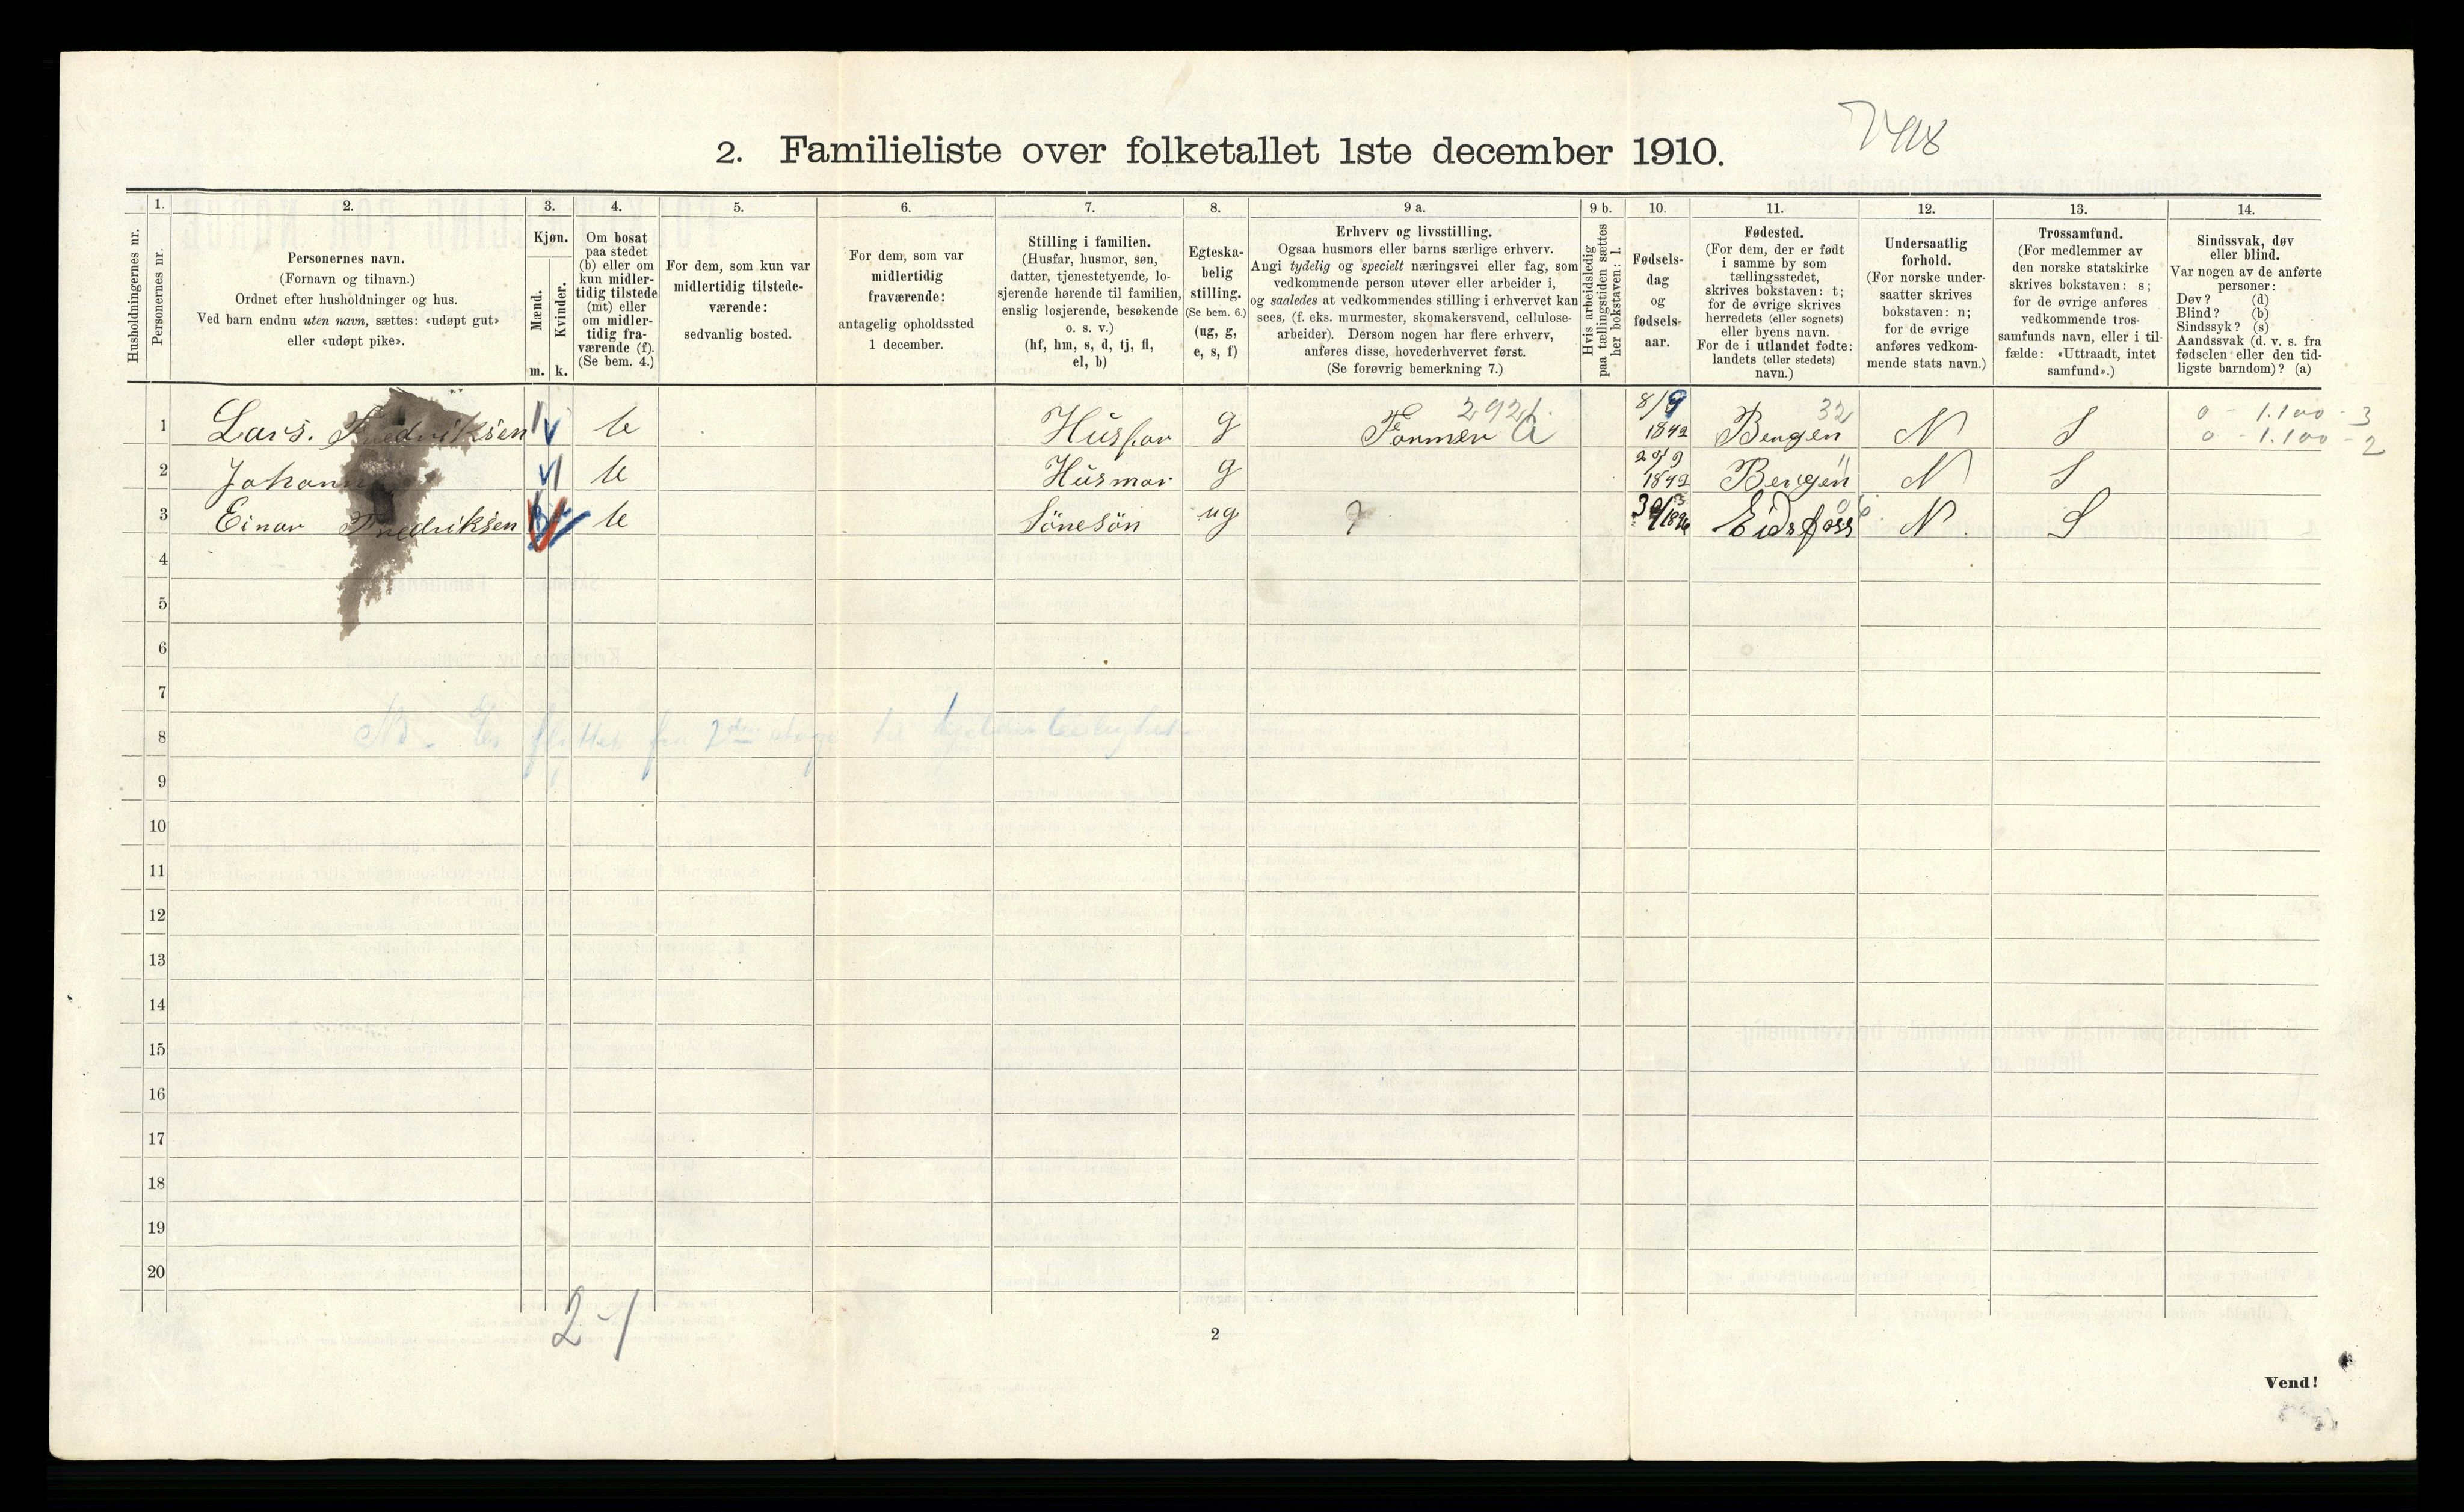 7418
2. Familieliste over folketallet 1ste december 1910.
Husholdningernes nr.
1.
Personernes nr.
2.
Personernes navn.
(Fornavn og tilnavn.)
Ordnet efter husholdninger og hus.
Ved barn endnu uten navn, sættes: «udøpt gut»
eller «udøpt pike».
3.
Kjøn.
Mænd.
Kvinder.
m. k.
4.
Om bosat
paa stedet
(b) eller om
kun midler-
tidig tilstede
(mt) eller
om midler-
tidig fra-
værende (f).
(Se bem. 4.)
5.
For dem, som kun var
midlertidig tilstede-
værende:
sedvanlig bosted.
6.
For dem, som var
midlertidig
fraværende:
antagelig opholdssted
1 december.
7.
Stilling i familien.
(Husfar, husmor, søn,
datter, tjenestetyende, lo-
sjerende hørende til familien,
enslig losjerende, besøkende
o. s. v.)
(hf, hm, s, d, tj, fl,
el, b)
8.
Egteska-
belig
stilling.
(Se bem. 6.)
(ug, g,
e, s, f)
9 a.
Erhverv og livsstilling.
Ogsaa husmors eller barns særlige erhverv.
Angi tydelig og specielt næringsvei eller fag, som
vedkommende person utøver eller arbeider i,
og saaledes at vedkommendes stilling i erhvervet kan
sees, (f. eks. murmester, skomakersvend, cellulose-
arbeider). Dersom nogen har flere erhverv,
anføres disse, hovederhvervet først.
(Se forøvrig bemerkning 7.)
9 b.
Hvis arbeidsledig
paa tællingstiden sættes
her bokstaven: l.
10.
Fødsels-
dag
og
fødsels-
aar.
11.
Fødested.
(For dem, der er født
i samme by som
tællingsstedet,
skrives bokstaven: t;
for de øvrige skrives
herredets (eller sognets)
eller byens navn.
For de i utlandet fødte:
landets (eller stedets)
navn.)
12.
Undersaatlig
forhold.
(For norske under-
saatter skrives
bokstaven: n;
for de øvrige
anføres vedkom-
mende stats navn.)
13.
Trossamfund.
(For medlemmer av
den norske statskirke
skrives bokstaven: s;
for de øvrige anføres
vedkommende tros-
samfunds navn, eller i til-
fælde: «Uttraadt, intet
samfund».)
14.
Sindssvak, døv
eller blind.
Var nogen av de anførte
personer:
Døv? (d)
Blind? (b)
Sindssyk? (s)
Aandssvak (d. v. s. fra
fødselen eller den tid-
ligste barndom)? (a)
1 Lars. Fredriksen b Husfar g Former 8/9 1842 Bergen 32 N S 0 - 1.100 - 3
0 - 1.100 - 2
2 b Husmor g 29/9 1842 Bergen N S
3 Einar Fredriksen b Sönesön ug Eidsfoss N S
4
5
6
7
8 NB. Er flyttet fra 2den etage til
9
10
11
12
13
14
15
16
17
18
19
20
2-1
2
Vend!